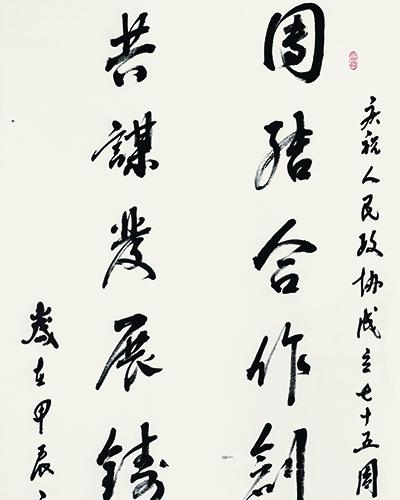 庆祝人民政协成立七十五周
團结合作創
共謀發展鑄
歲在甲辰